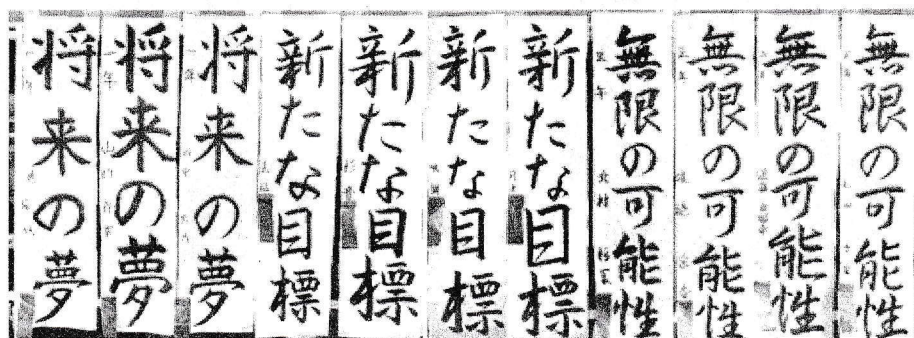 無限の可能性
無限の可能性
無限の可能性
無限の可能性
新たな目標
新たな目標
新たな目標
新たな目標
将来の夢
将来の夢
将来の夢